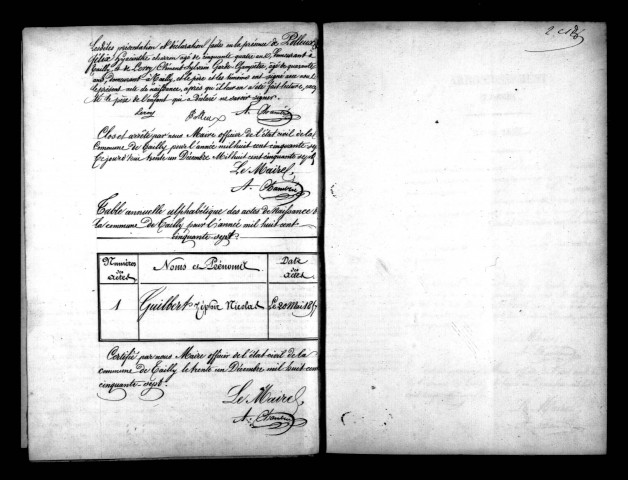 Lesdites présentation et déclaration faites en la présence de
hyacinthe charron âgé de cinquante quatre ans, demeurant à
Tailly, & de Leroy Clément Sylvain Garde-Champêtre, âgé de quarante
ans, demeurant à Tailly, et le père et les témoins ont signé avec nous
le présent acte de naissance, après qu'il leur en a été fait lecture,
le père de l'enfant qui a déclaré ne savoir signer.
Leroy
Clos et arrêté par nous Maire officier de l'état civil de la
Commune de Tailly pour l'année mil huit cent cinquante sept
Cejourd'hui trente un Décembre Mil huit cent cinquante sept
Le Maire
A.
Table annuelle alphabétique des actes de Naissance de
la commune de Tailly pour l'année mil huit cent
cinquante sept.
Numéros des actes
Noms et Prénoms
Date des actes
1
Guilbert Nicolas
Le 20 Mai 185
Certifié par nous Maire officier de l'état civil de la
commune de Tailly le trente un Décembre mil huit cent
cinquante sept.
Le Maire
A.